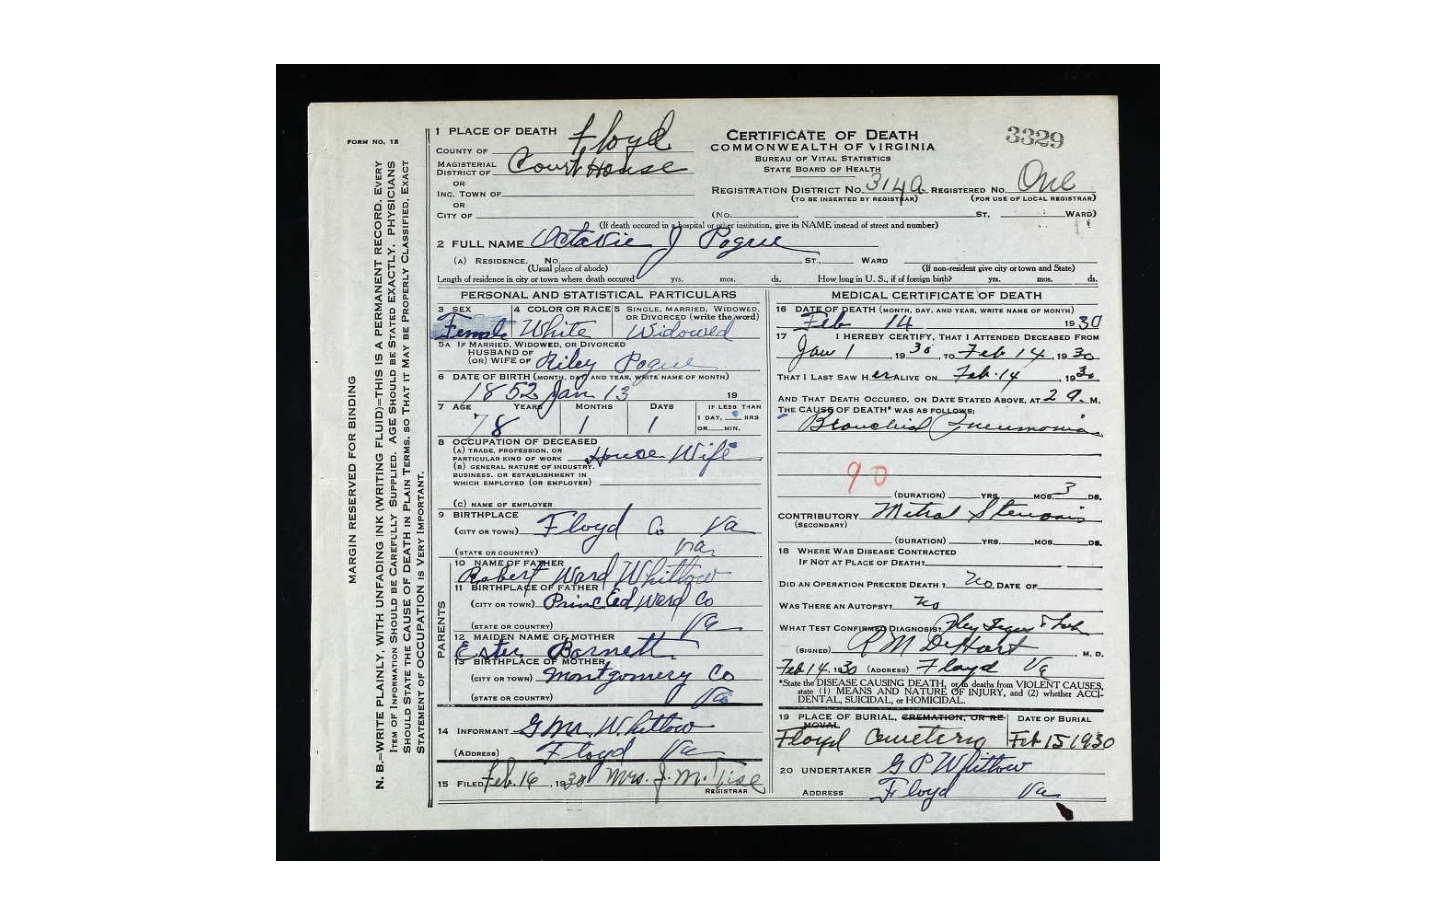 FORM NO. 12
MARGIN RESERVED FOR BINDING
N. B.—WRITE PLAINLY, WITH UNFADING INK (WRITING FLUID)—THIS IS A PERMANENT RECORD. EVERY
ITEM OF INFORMATION SHOULD BE CAREFULLY SUPPLIED. AGE SHOULD BE STATED EXACTLY. PHYSICIANS
SHOULD STATE THE CAUSE OF DEATH IN PLAIN TERMS, SO THAT IT MAY BE PROPERLY CLASSIFIED. EXACT
STATEMENT OF OCCUPATION IS VERY IMPORTANT.
1 PLACE OF DEATH
COUNTY OF Floyd
MAGISTERIAL
DISTRICT OF Court House
OR
INC. TOWN OF
OR
CITY OF
CERTIFICATE OF DEATH
COMMONWEALTH OF VIRGINIA
BUREAU OF VITAL STATISTICS
STATE BOARD OF HEALTH
3329
REGISTRATION DISTRICT NO. 314a REGISTERED NO. One
(TO BE INSERTED BY REGISTRAR) (FOR USE OF LOCAL REGISTRAR)
(NO. ST. WARD)
(If death occured in a hospital or other institution, give its NAME instead of street and number)
2 FULL NAME Octavie J Pogue
(A) RESIDENCE. NO. ST. WARD
(Usual place of abode) (If non-resident give city or town and State)
Length of residence in city or town where death occured yrs. mos. ds. How long in U. S., if of foreign birth? yrs. mos. ds.
PERSONAL AND STATISTICAL PARTICULARS
3 SEX 4 COLOR OR RACE 5 SINGLE, MARRIED, WIDOWED,
OR DIVORCED (write the word)
Female White Widowed
5A IF MARRIED, WIDOWED, OR DIVORCED
HUSBAND OF
(OR) WIFE OF Riley Pogue
6 DATE OF BIRTH (MONTH, DAY, AND YEAR, WRITE NAME OF MONTH)
1852 Jan 13 19
7 AGE YEARS MONTHS DAYS IF LESS THAN
78 1 1 1 DAY, HRS
OR MIN.
8 OCCUPATION OF DECEASED
(A) TRADE, PROFESSION, OR
PARTICULAR KIND OF WORK House Wife
(B) GENERAL NATURE OF INDUSTRY,
BUSINESS, OR ESTABLISHMENT IN
WHICH EMPLOYED (OR EMPLOYER)
(C) NAME OF EMPLOYER
9 BIRTHPLACE
(CITY OR TOWN) Floyd Co Va
(STATE OR COUNTRY) Va
PARENTS
10 NAME OF FATHER
Robert Ward Whitlow
11 BIRTHPLACE OF FATHER
(CITY OR TOWN) Princ Edward Co
(STATE OR COUNTRY) Va
12 MAIDEN NAME OF MOTHER
Ester Barnett
13 BIRTHPLACE OF MOTHER
(CITY OR TOWN) Montgomery Co
(STATE OR COUNTRY) Va
14 INFORMANT G M Whitlow
(ADDRESS) Floyd Va
15 FILED Feb. 16, 1930 Mrs. J. M. Tise
REGISTRAR
MEDICAL CERTIFICATE OF DEATH
16 DATE OF DEATH (MONTH, DAY, AND YEAR, WRITE NAME OF MONTH)
Feb 14 1930
17 I HEREBY CERTIFY, THAT I ATTENDED DECEASED FROM
Jan 1, 1930, TO Feb 14, 1930
THAT I LAST SAW HER ALIVE ON Feb. 14, 1930
AND THAT DEATH OCCURED, ON DATE STATED ABOVE, AT 2 a. M.
THE CAUSE OF DEATH* WAS AS FOLLOWS:
Bronchial Pneumonia
90
(DURATION) YRS. MOS. 3 DS.
CONTRIBUTORY Mitral Stenosis
(SECONDARY)
(DURATION) YRS. MOS. DS.
18 WHERE WAS DISEASE CONTRACTED
IF NOT AT PLACE OF DEATH?
DID AN OPERATION PRECEDE DEATH? No DATE OF
WAS THERE AN AUTOPSY? No
WHAT TEST CONFIRMED DIAGNOSIS?
(SIGNED) R M DeHart M. D.
Feb 14, 1930 (ADDRESS) Floyd Va
*State the DISEASE CAUSING DEATH, or in deaths from VIOLENT CAUSES,
state (1) MEANS AND NATURE OF INJURY, and (2) whether ACCI-
DENTAL, SUICIDAL, or HOMICIDAL.
19 PLACE OF BURIAL, CREMATION, OR RE- DATE OF BURIAL
MOVAL
Floyd Cemetery Feb 15 1930
20 UNDERTAKER G P Whitlow
ADDRESS Floyd Va